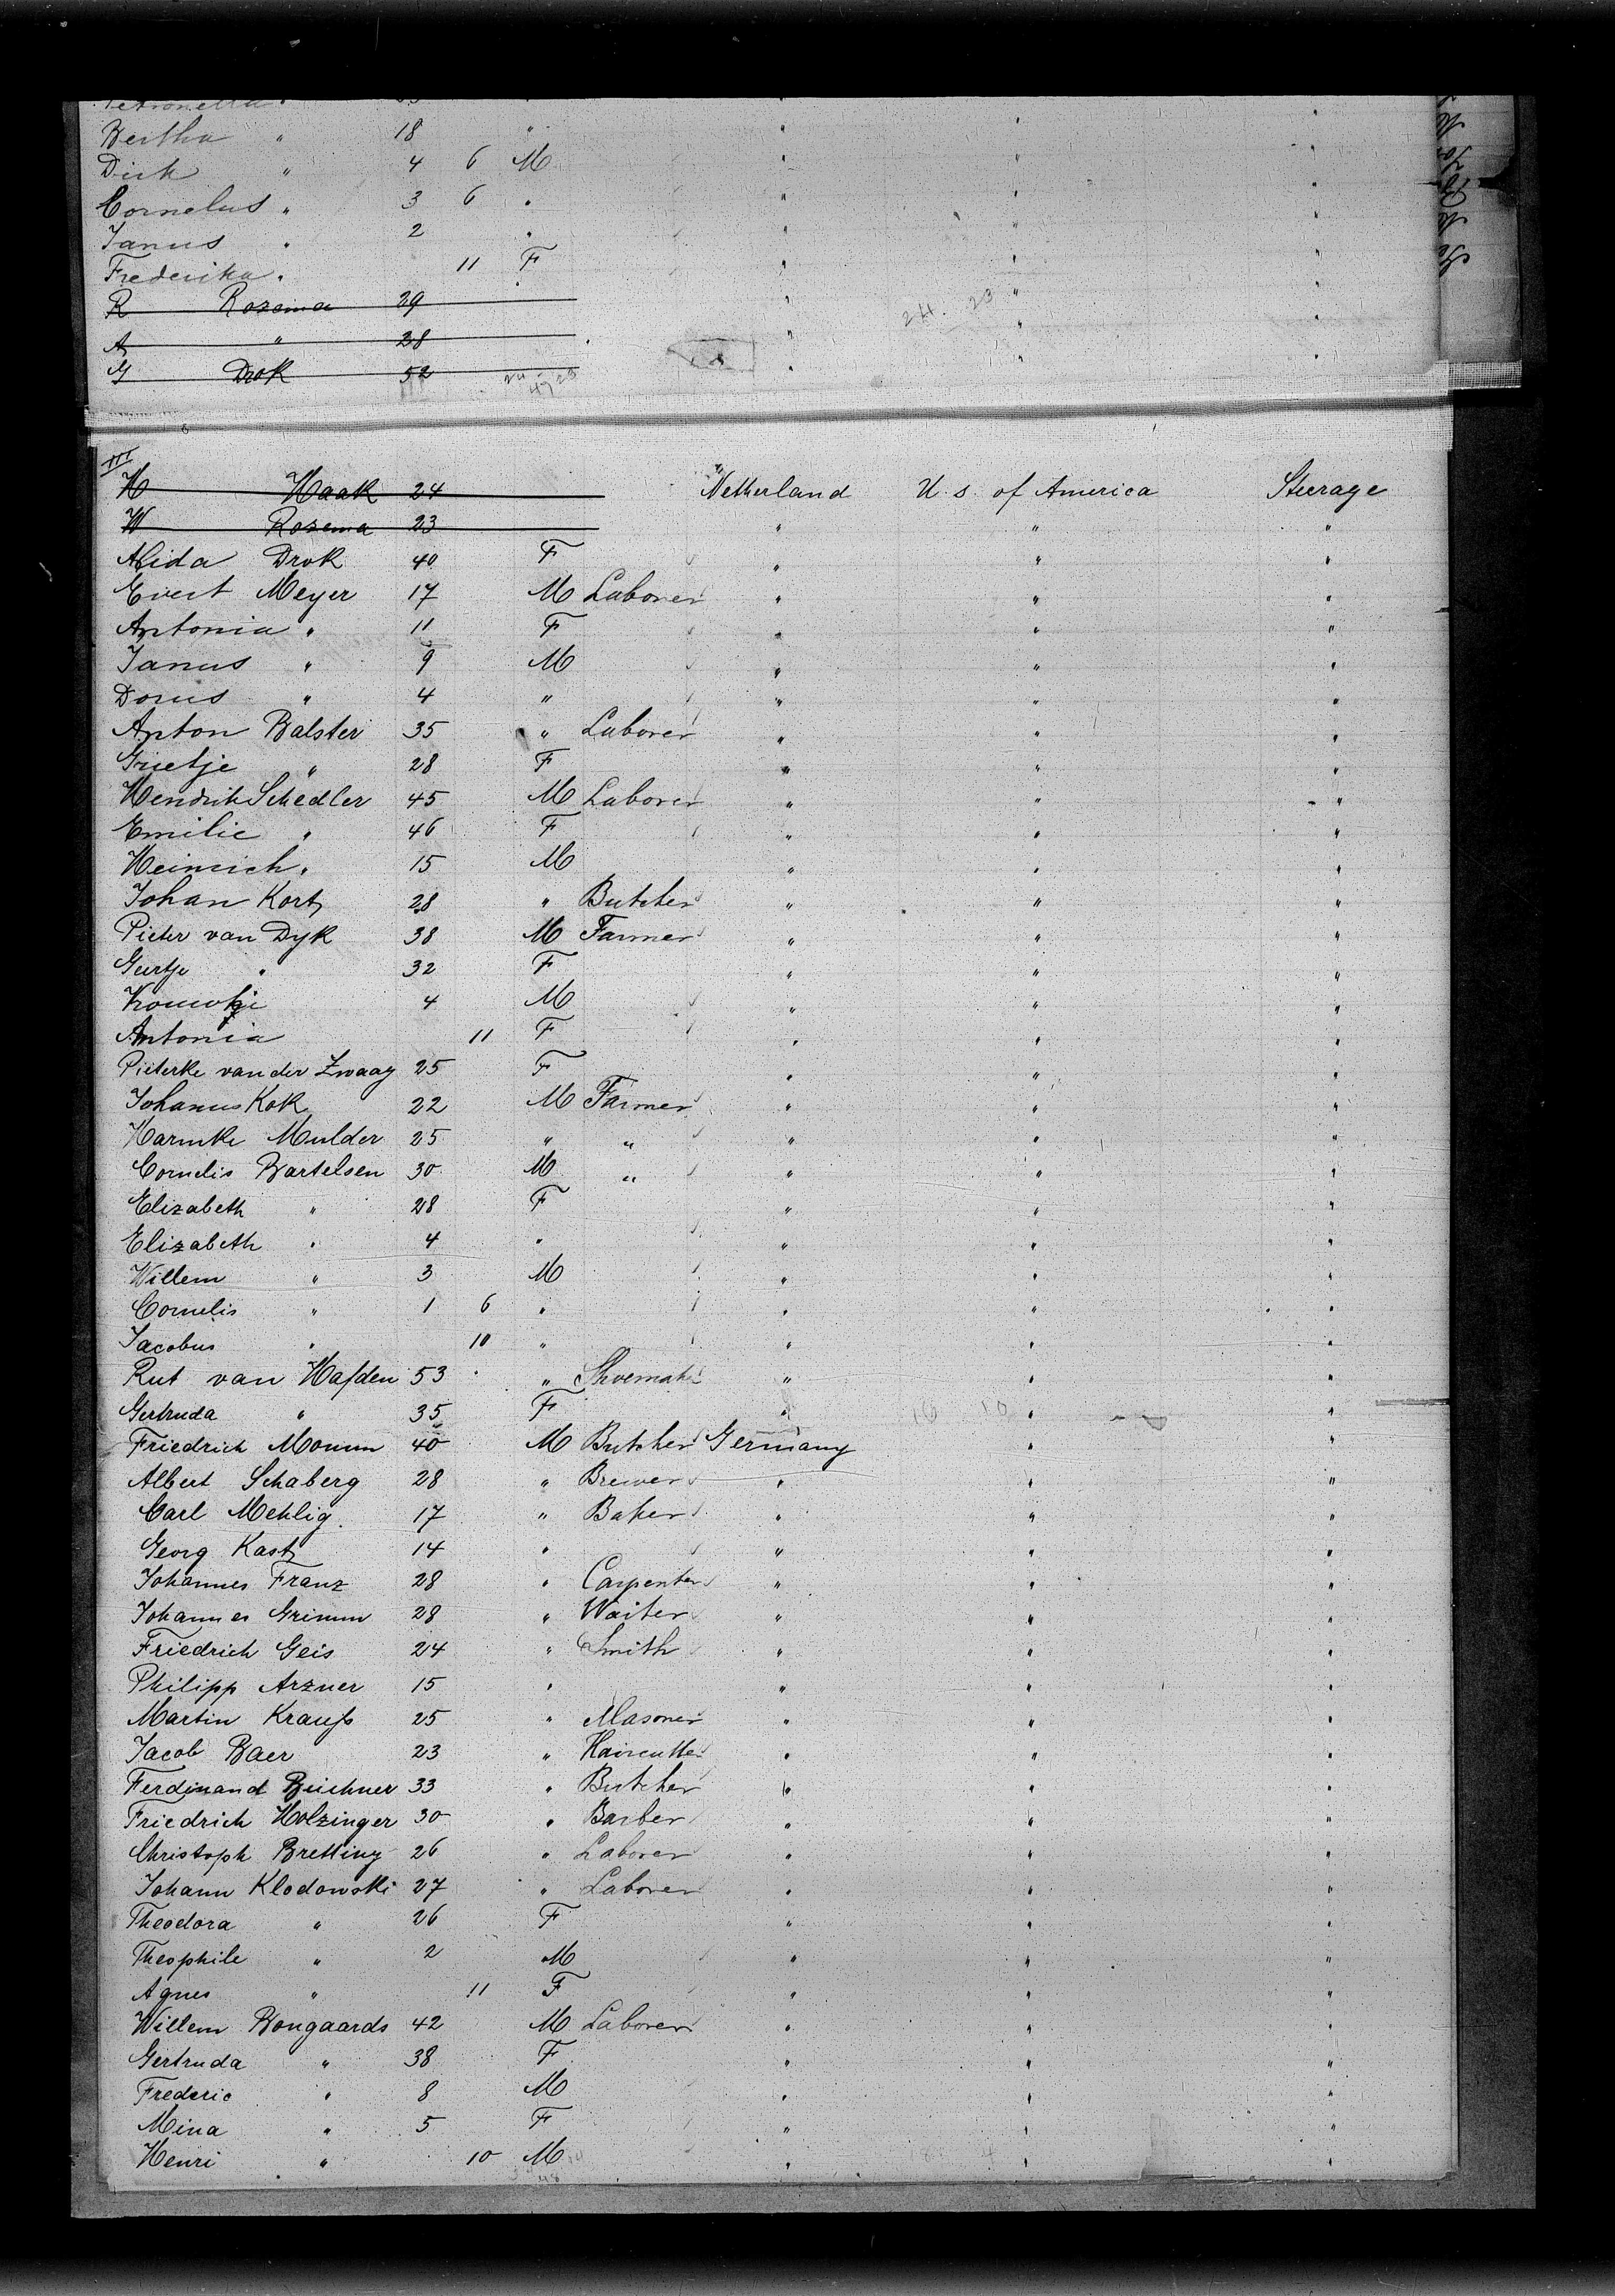 Petronella "
Bertha " 18 " " " "
Dirk " 4 6 M " " "
Cornelus " 3 6 " " " "
Janus " 2 " " " "
Frederika " 11 F " " "
R Rozema 29 " " "
A " 28 " " "
G Drok 52 " " "
III
H Haak 24 Netherland U. S. of America Steerage
W Rozema 23 " " "
Alida Drok 40 F " " "
Evert Meyer 17 M Laborer " " "
Antonia " 11 F " " "
Janus " 9 M " " "
Dorus " 4 " " " "
Anton Balster 35 " Laborer " " "
Grietje " 28 F " " "
Hendrik Schedler 45 M Laborer " " "
Emilie " 46 F " " "
Heinrich " 15 M " " "
Johan Kort 28 " Butcher " " "
Pieter van Dyk 38 M Farmer " " "
Geertje " 32 F " " "
4 M " " "
Antonia 11 F " " "
Pieterke van der Zwaag 25 F " " "
Johannes Kok 22 M Farmer " " "
Harmke Mulder 25 " " " " "
Cornelis Bartelsen 30 M " " " "
Elizabeth " 28 F " " "
Elizabeth " 4 " " " "
Willem " 3 M " " "
Cornelis " 1 6 " " " "
Jacobus " 10 " " " "
Rut van Hafden 53 " Shoemak " " "
Gertruda " 35 F " " "
Friedrich Momm 40 M Butcher Germany " "
Albert Schaberg 28 " Brewer " " "
Carl Mehlig 17 " Baker " " "
Georg Kast 14 " " " "
Johannes Franz 28 " Carpenter " " "
Johannes Grimm 28 " Waiter " " "
Friedrich Geis 24 " Smith " " "
Philipp Arzner 15 " " " "
Martin Krauß 25 " Masoner " " "
Jacob Baer 23 " Haircutter " " "
Ferdinand Büchner 33 " Butcher " " "
Friedrich Holzinger 30 " Barber " " "
Christoph Bretting 26 " Laborer " " "
Johann Klodowski 27 " Laborer " " "
Theodora " 26 F " " "
Theophile " 2 M " " "
Agnes " 11 F " " "
Willem Bongaards 42 M Laborer " " "
Gertruda " 38 F " " "
Frederic " 8 M " " "
Mina " 5 F " " "
Henri " 10 M " " "